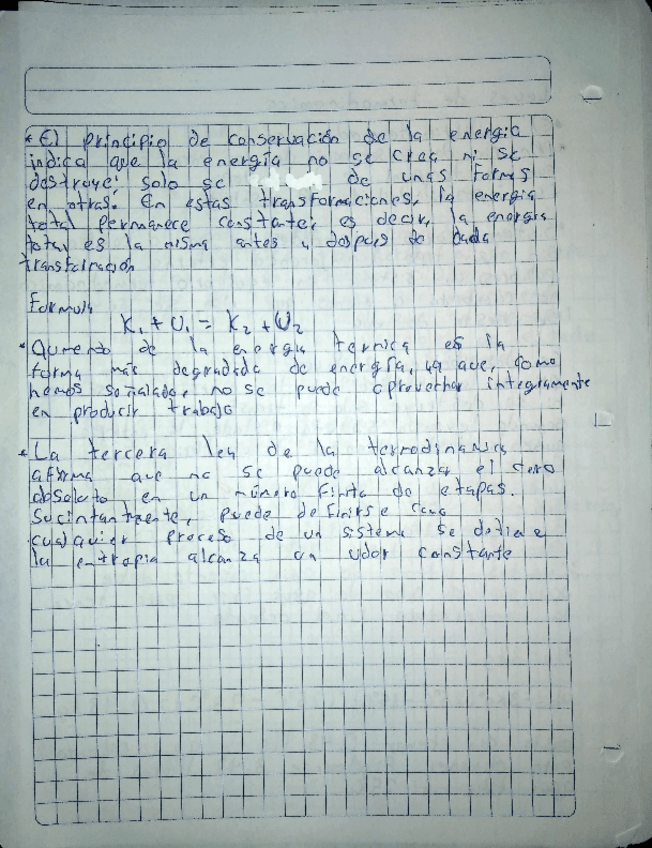 * El principio de conservación de la energía
indica que la energía no se crea ni se
destruye; solo se de unas formas
en otras. En estas transformaciones, la energía
total permanece constante; es decir, la energía
total es la misma antes y despues de cada
transformación
Formula
K₁ + U₁ = K₂ + U₂
* Aumento de la energia termica es la
forma más degradada de energía, ya que, como
hemos señalado, no se puede aprovechar integramente
en producir trabajo
* La tercera ley de la termodinamica
afirma que no se puede alcanzar el cero
absoluto en un número finito de etapas.
Sucintantmente, puede definirse como
cualquier proceso de un sistema se detiene
la entropia alcanza un valor constante